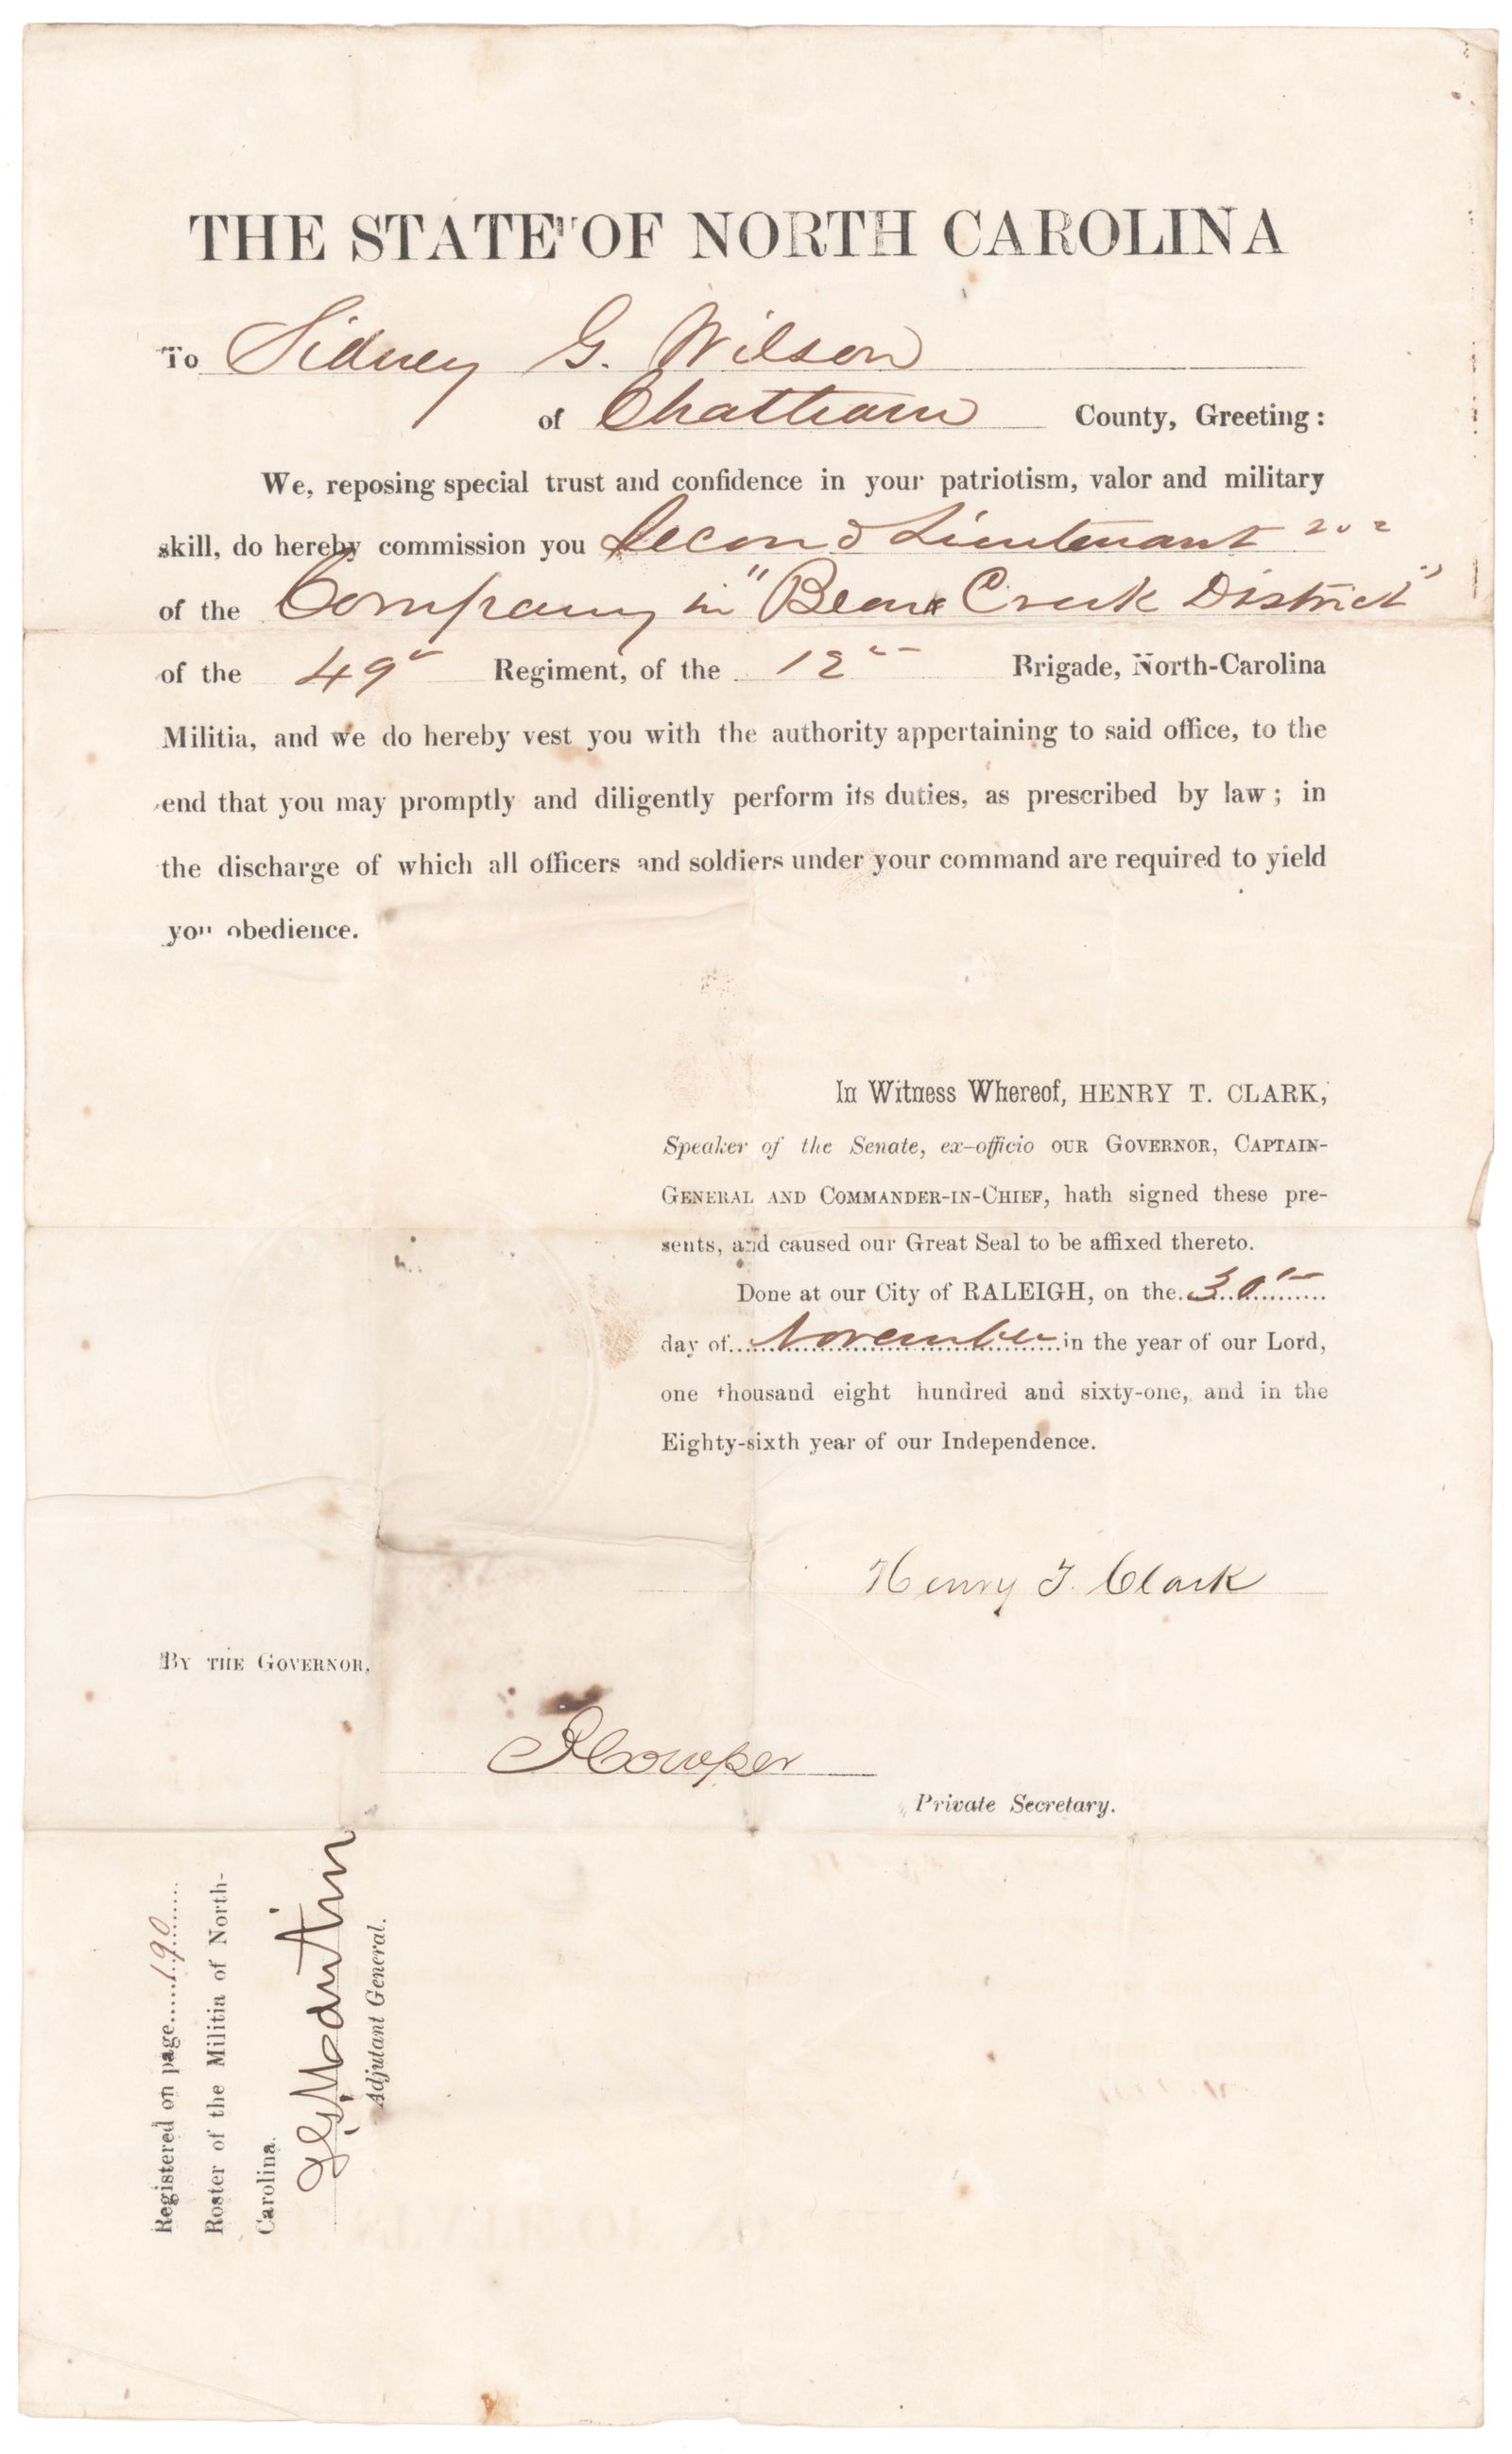 THE STATE OF NORTH CAROLINA
To Sidney G. Wilson
of Chatham County, Greeting:
We, reposing special trust and confidence in your patriotism, valor and military
skill, do hereby commission you Second Lieutenant
of the Company in "Bear Creek District"
of the 49th Regiment, of the 12th Brigade, North-Carolina
Militia, and we do hereby vest you with the authority appertaining to said office, to the
end that you may promptly and diligently perform its duties, as prescribed by law; in
the discharge of which all officers and soldiers under your command are required to yield
you obedience.
In Witness Whereof, HENRY T. CLARK,
Speaker of the Senate, ex-officio OUR GOVERNOR, CAPTAIN-
GENERAL AND COMMANDER-IN-CHIEF, hath signed these pre-
sents, and caused our Great Seal to be affixed thereto.
Done at our City of RALEIGH, on the 30th
day of November in the year of our Lord,
one thousand eight hundred and sixty-one, and in the
Eighty-sixth year of our Independence.
Henry T. Clark
BY THE GOVERNOR,
Cowper
Private Secretary.
Registered on page 190
Roster of the Militia of North-
Carolina.
J. G. Martin
Adjutant General.